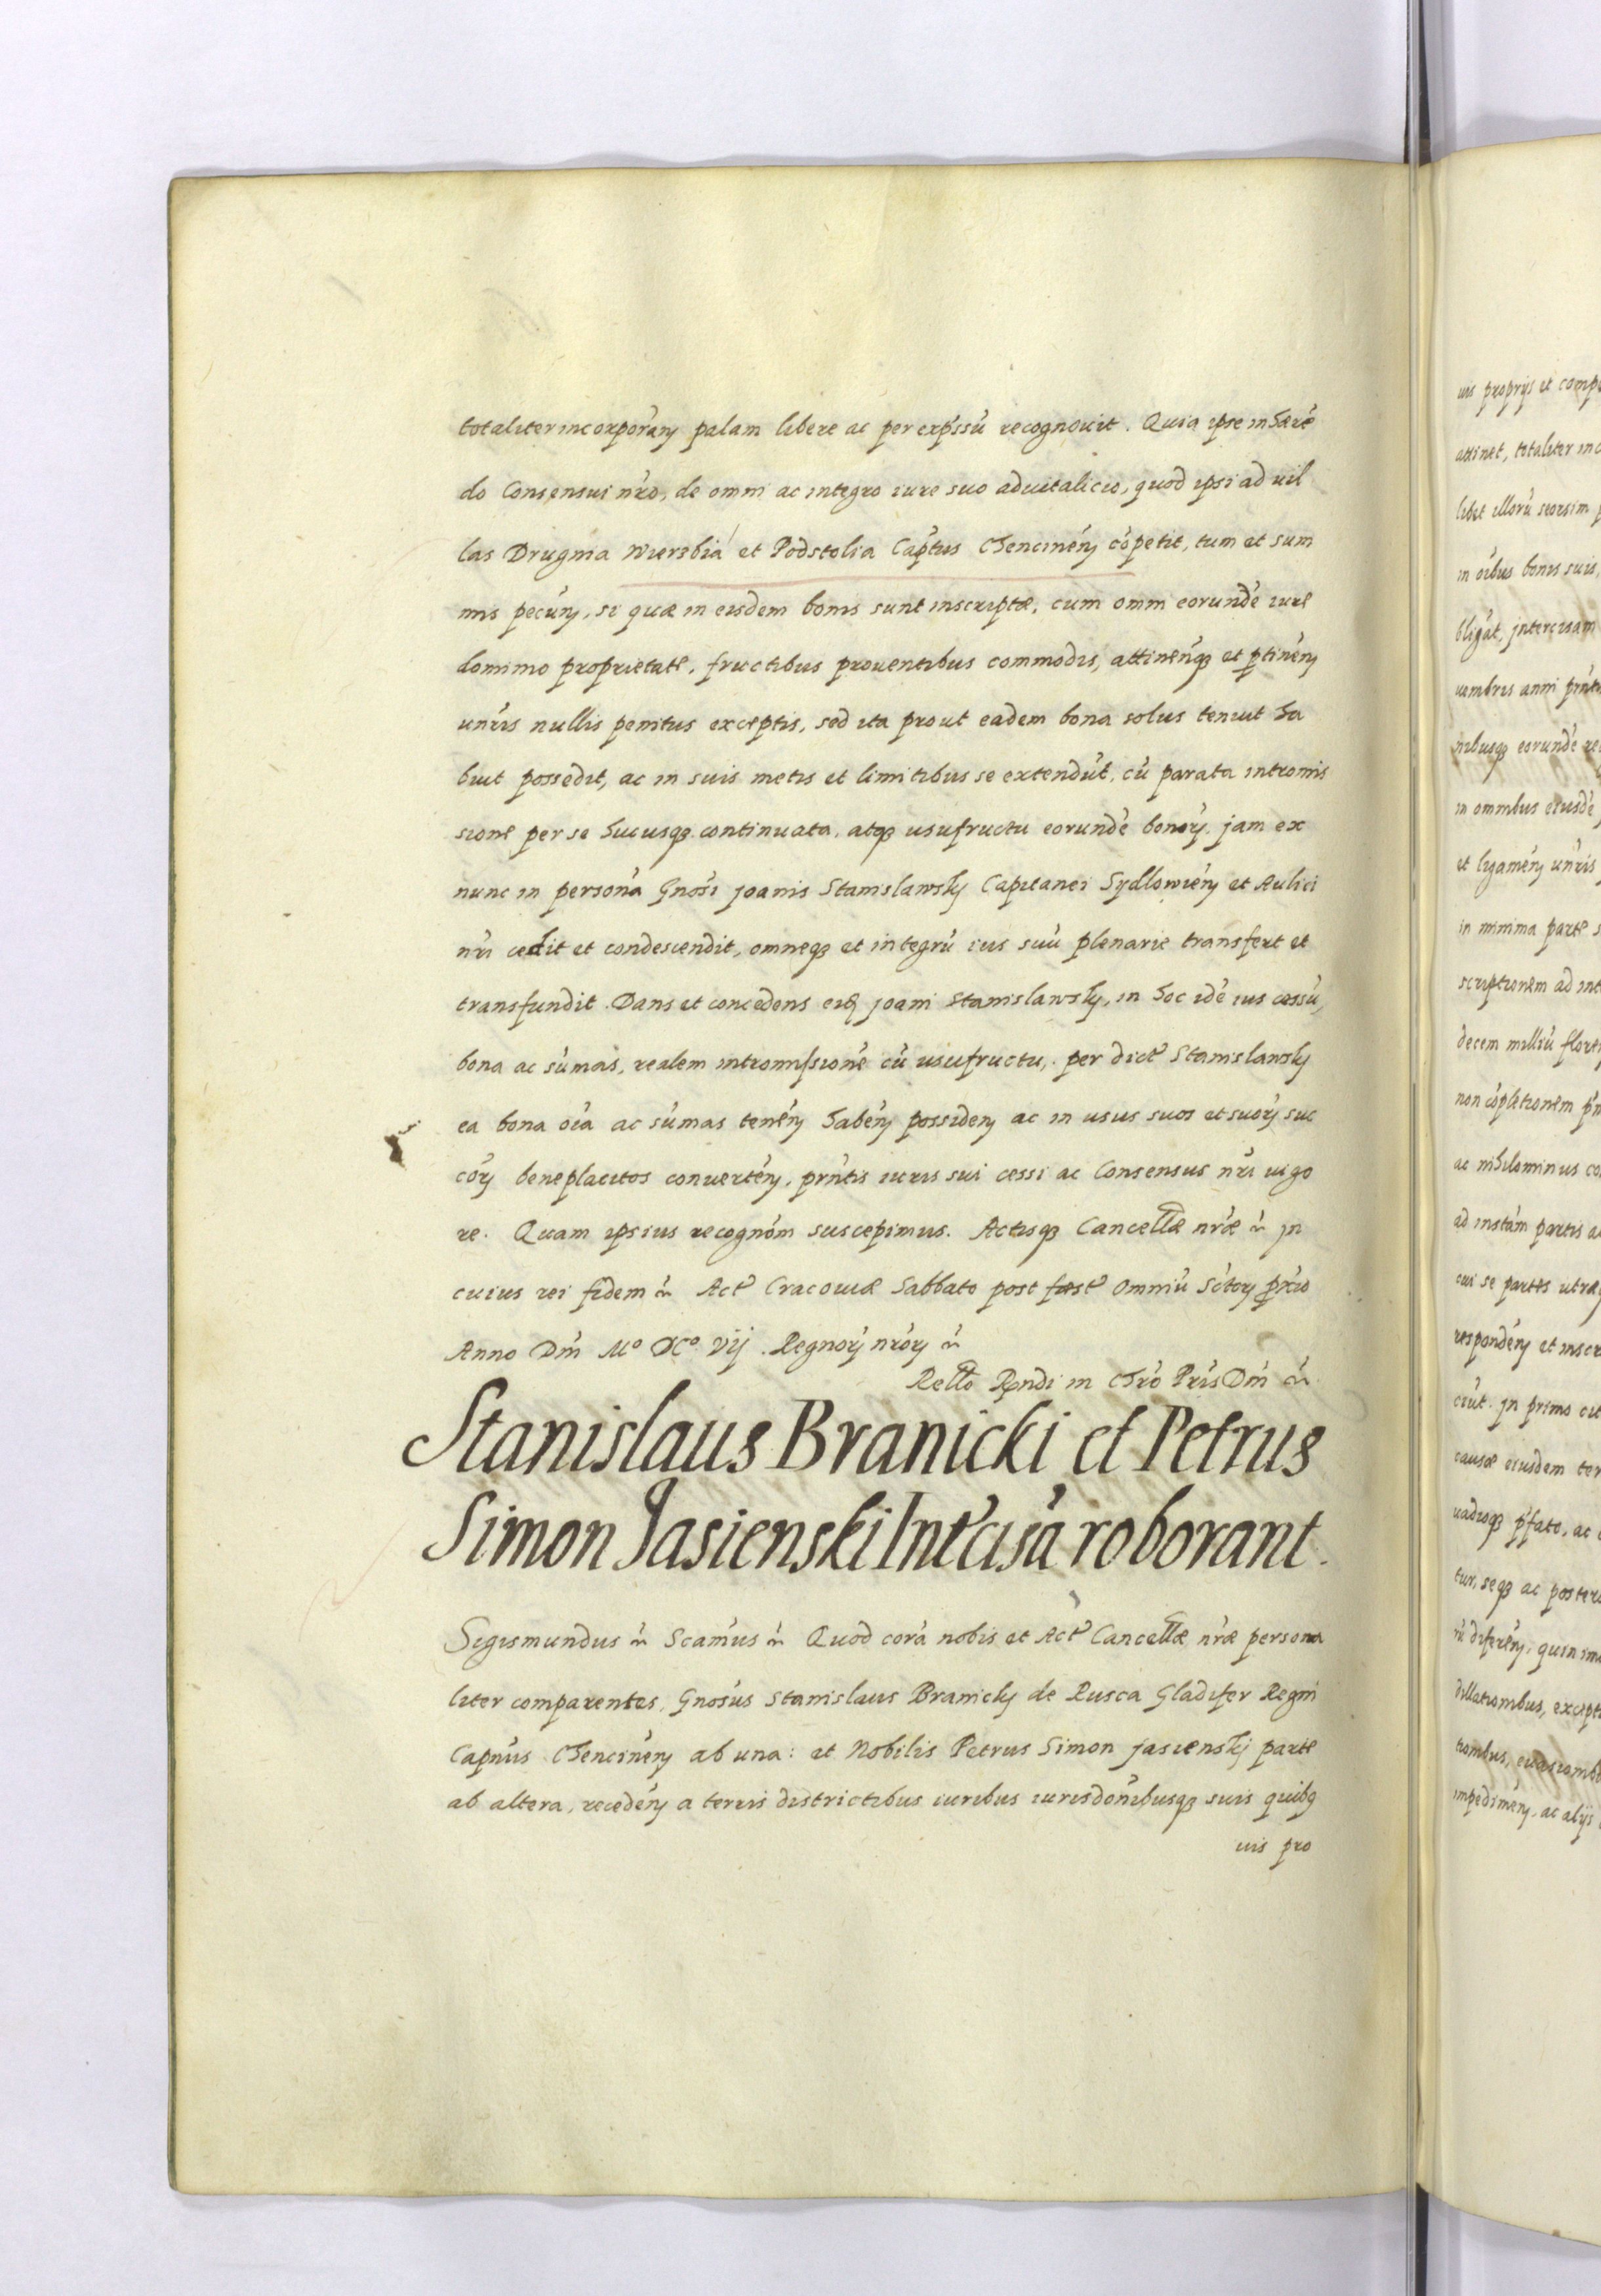 totaliter incorporań palam libere ac per expŕssú recognouit. Quia ipse inhaeré
do Consensui nŕo, de omni ac integro iure suo aduitalicio, quod ipsi ad uil
las Drugnia Wierzbia et Podstolia Captús Chencinéń cópetit, tum et sum
mis pecúń, si quæ in eisdem bonis sunt inscriptæ, cum omni eorundé iure
dominio proprietate, fructibus prouentibus commodis, attinéńqȝ et ptinéń
unŕis nullis penitus exceptis, sed ita prout eadem bona solus tenuit ha
buit possedit, ac in suis metis et limitibus se extendút, cú parata intromis
sione per se hucusqȝ continuata, atqȝ usufructu eorundé bonorȝ, jam ex
nunc in persońa Gnośi joanis Stanislawskj Capitanei Sydlowiéń et Aulici
nŕi cedit et condescendit, omneqȝ et integrú ius suú plenarie transfert et
transfundit. Dans et concedens eid joani Stanislawskj, in hoc idé ius cessú,
bona ac súmas, realem intromissioné cú usufructu, per dict Stanislawskj
ea bona oía ac súmas tenéń habéń possideń ac in usus suos et suorȝ suc
córȝ beneplacitos conuertéń, pŕntis iuris sui cessi ac Consensus nŕi uigo
re. Quam ipsius recognóm suscepimus. Actisqȝ Cancellæ nŕæ ẽ jn
cuius rei fidem ẽ Act Cracouiæ Sabbato post fæst Omniú Sctorȝ pxio
Anno Dńi Mº DCº Vij. Regnorȝ nŕorȝ ẽ
Rello Rndi in Chŕo Pŕis Dńi ẽ
Stanislaus Branicki et Petrus
Simon Jasienski Int'cisá roborant.
Sigismundus ẽ Scamús ẽ Quod corá nobis et Act Cancellæ nŕæ persona
liter comparentes, Gnosus Stanislaus Branickj de Rusca Gladifer Regni
Capnús Chencinéń ab una: et Nobilis Petrus Simon jasienskj parte
ab altera, recedéń a terris districtibus iuribus iurisdonibusqȝ suis quibȝ
uis pro
uis proprijs et comp
attinet, totaliter inc
libet illorú seorsim p
in oíbus bonis suis,
bligát, jntercisam
uembris anni pŕnt
nibusqȝ eorundé re
in omnibus eiusdé
et ligaméń unŕis
in minima parte s
scriptionem ad int
decem milliú flor
non cópletionem pŕ
ac nihilominus co
ad instám partis a
cui se partes utræ
respondéń et inscr
ciút. jn primo cit
causæ eiusdem ter
uadioqȝ pŕfato, ac
tur, seqȝ ac poster
rú diferéń, quin im
dillationibus, except
tionibus, euasionib
impediméń, ac alijs